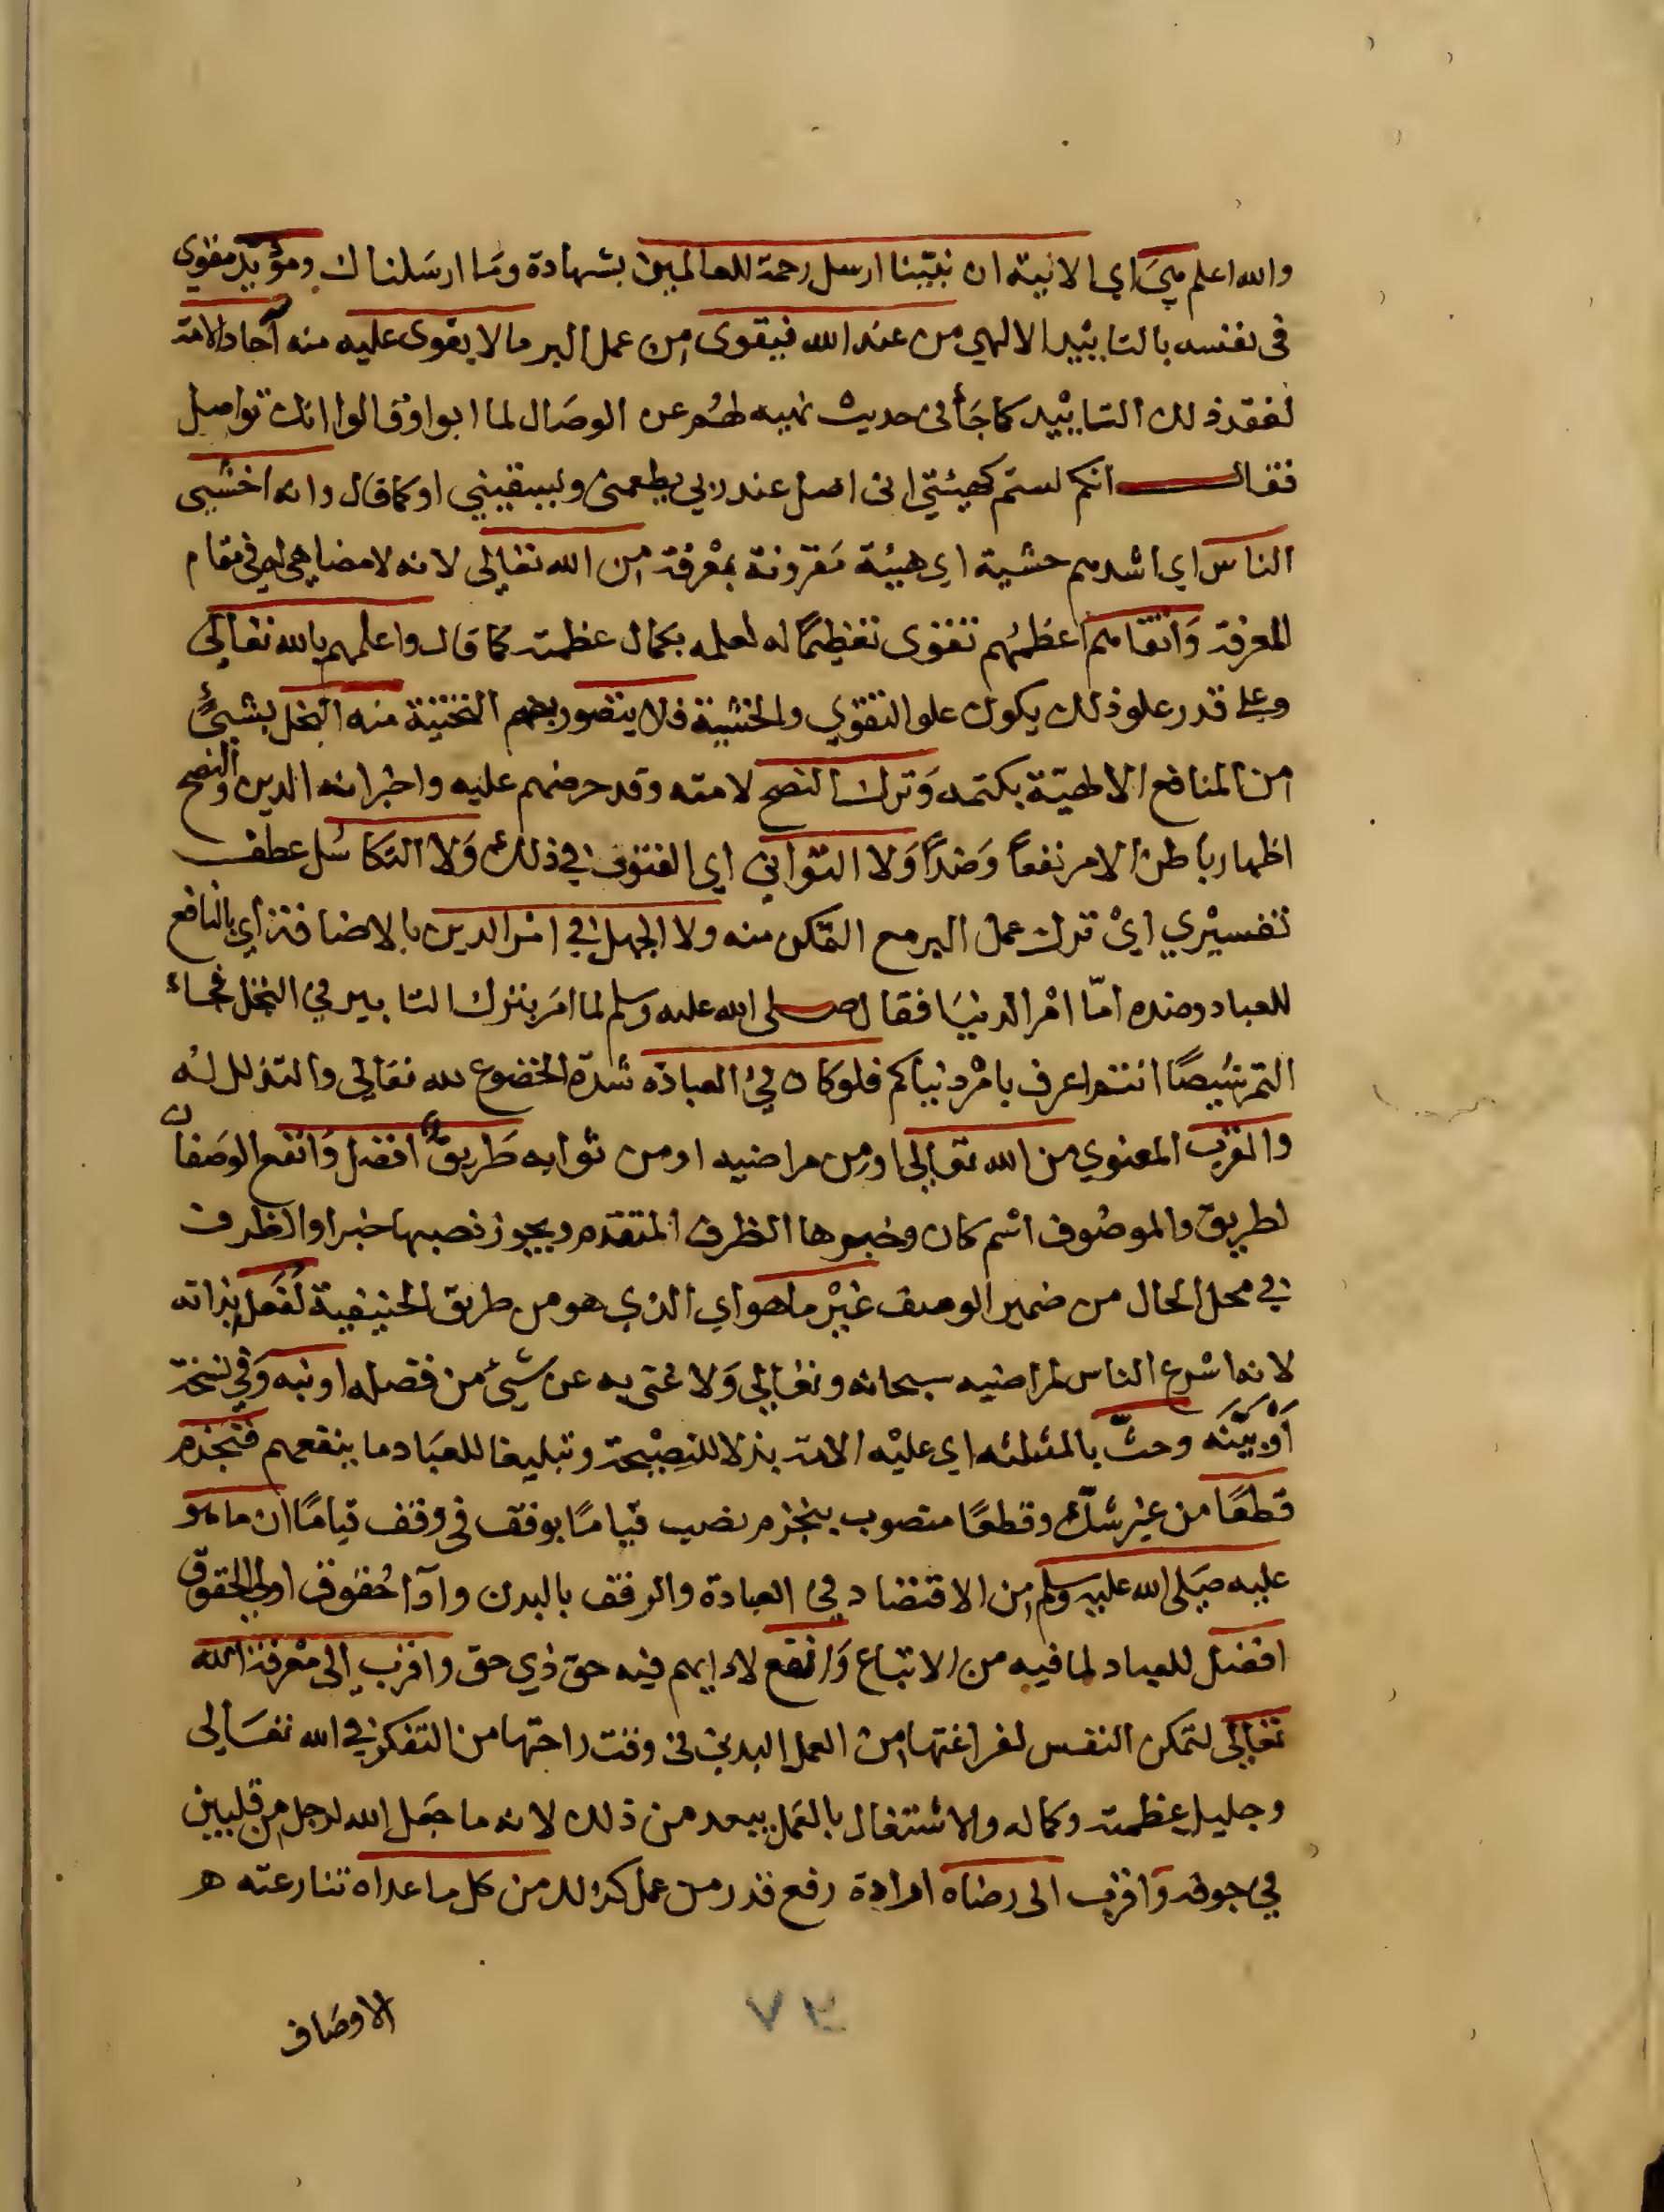 والله اعلم هي اي الانبه ان نبينا ارسل رحمة للعالمين بشهادة وما ارسلناك ومؤيد مقوى
في نفسه بالتاييد الالهي من عند الله فيقوى من عمل البر ما لا يقوى عليه منه آحاد الامة
لفقد ذلك التاييد كما جأ في حديث نهيه لهم عن الوصال لما ابوا وقالوا انك تواصل
فقال انكم لستم كهيئتي اني اصل عند ربي يطعمني ويسقيني او كما قال وانه اخشى
الناس اي اشدهم خشية اي هيبة مقرونة بمعرفة من الله تعالى لانه لا مضاهي له في مقام
المعرفة واتقاهم اعظمهم تقوى تعظيمًا له لعلمه بكمال عظمته كما قال واعلمهم بالله تعالى
وعلى قدر علو ذلك يكون علو التقوي والخشية فلا يتصور بهم التختية منه البخل بشيئ
من المنافع الالهية بكتمه وترك النصح لامته وقد حرضهم عليه واخبر انه الدين والنصح
اظهار باطن الامر نفعًا وضدًا ولا التواني اي الفتور في ذلك ولا التكاسل عطف
تفسيري اي ترك عمل البر مع التمكن منه ولا الجهل في امر الدين بالاضافة اي بالنافع
للعباد وضده امّا امر الدنيا فقال صلى الله عليه وسلم لما امر بترك التابير في النخل فجاء
التمر شيصًا انتم اعرف بامر دنياكم فلو كان في العبادة شدة الخضوع لله تعالى والتذلل له
والقرب المعنوي من الله تعالى او من مراضيه او من ثوابه طريق افضل وانفع الوصفان
لطريق والموصوف اسم كان وخبرها الظرف المتقدم ويجوز نصبها خبرا والظرف
في محل الحال من ضمير الوصف غير ما هو اي الذي هو من طريق الحنيفية لفعل بذاته
لانه اسرع الناس لمراضيه سبحانه وتعالى ولا غنى به عن شيئ من فضله او نبه وفي نسخة
أو بيّنه وحثّ بالمثلثه اي عليه الامة بذلا للنصيحة وتبليغا للعباد ما ينفعهم فنجزم
قطعًا من غير شك وقطعًا منصوب بنجزم نصيب قيامًا بوقف في وقف قيامًا ان ما هو
عليه صلى الله عليه وسلم من الاقتصاد في العبادة والرفق بالبدن وآدا حقوق اولي الحقوق
افضل للعباد لما فيه من الاتباع وانفع لاد ايهم فيه حق ذي حق واقرب الى معرفة الله
تعالى لتمكن النفس لفراغتها من العمل البدني في وقت راحتها من التفكر في الله تعالى
وجليل عظمته وكماله والاشتغال بالعمل يبعد من ذلك لانه ما جعل الله لرجل من قلبين
في جوفه واقرب الى رضاه ارادة رفع قدر من عمل كذلك من كل ما عداه تنازعته هـ
الاوصاف
٧٤